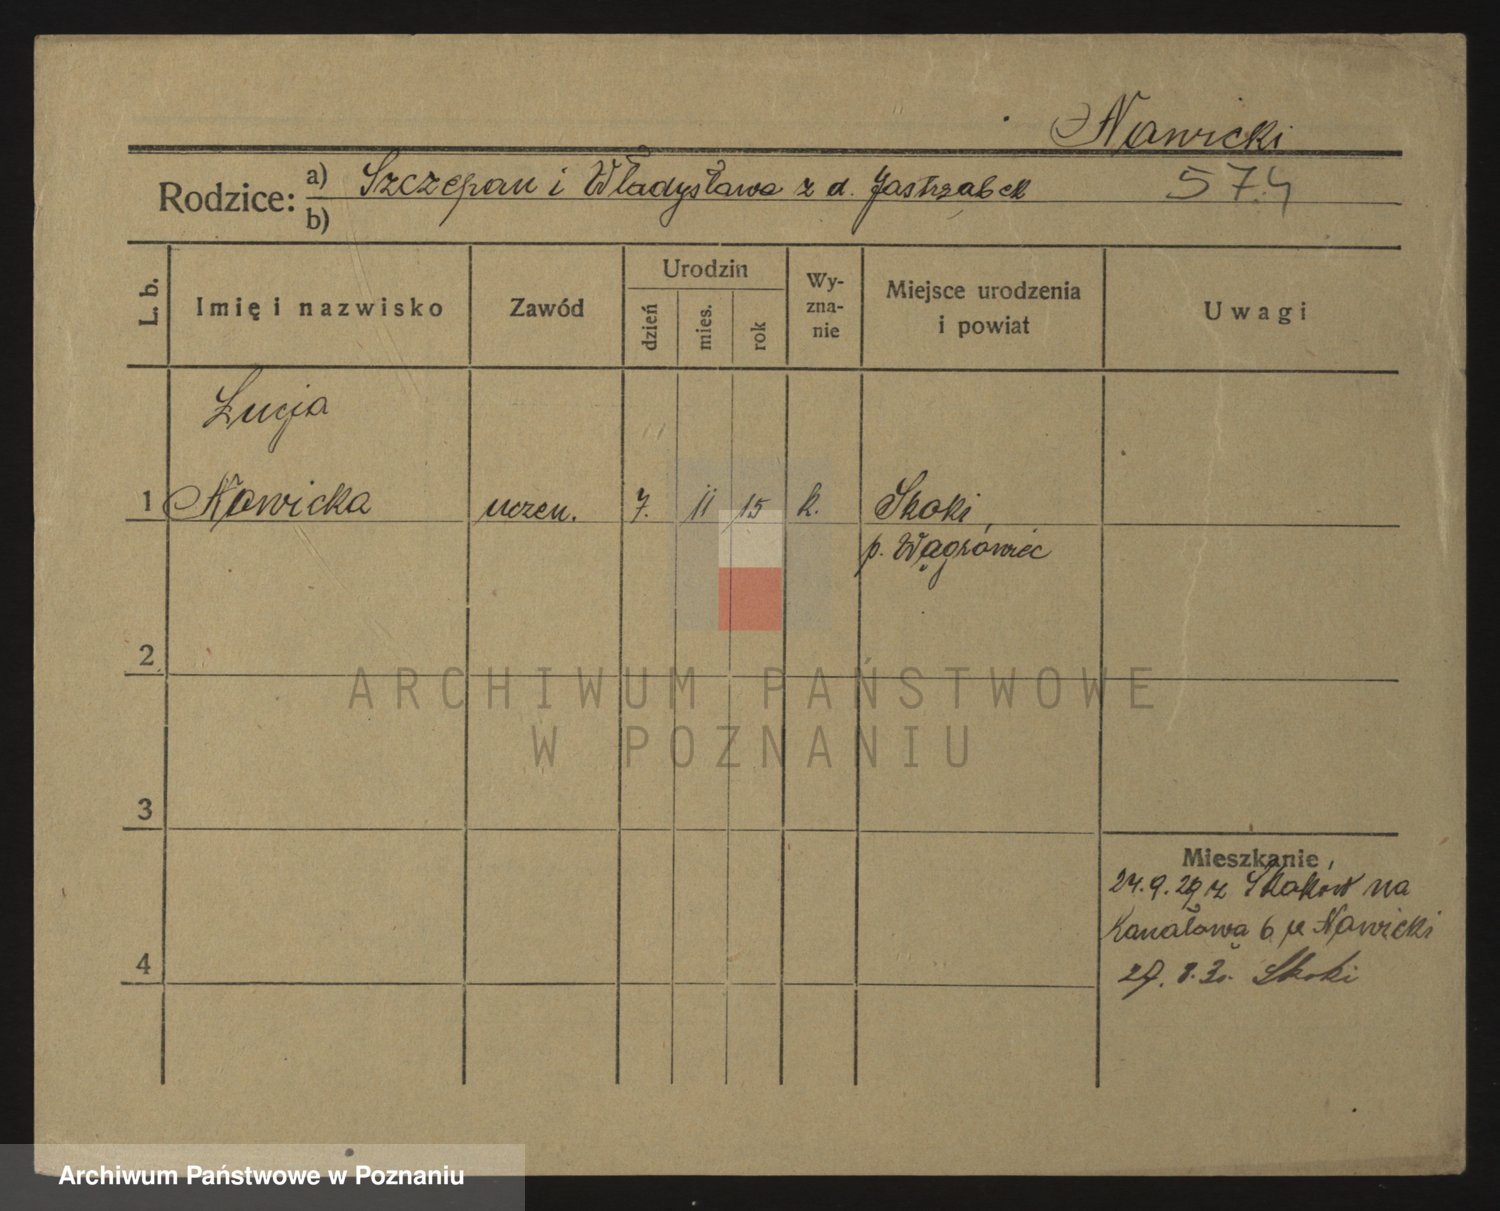 Nawicki
Rodzice: a) Szczepan i Władysława z d. Jastrząbek 574
b)
L. b. Imię i nazwisko Zawód Urodzin dzień mies. rok Wyznanie Miejsce urodzenia i powiat Uwagi
Łucja
1 Nawicka uczen. 7. 11 15 k. Skoki
p. Wągrówiec
2
ARCHIWUM PAŃSTWOWE
W POZNANIU
3
Mieszkanie
24.9.29 z Skoków na
Kanałowa 6 u Nawicki
4
29. 8. 30. Skoki
Archiwum Państwowe w Poznaniu